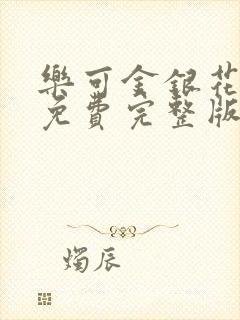 樂可金銀花
免費完整版
燭辰